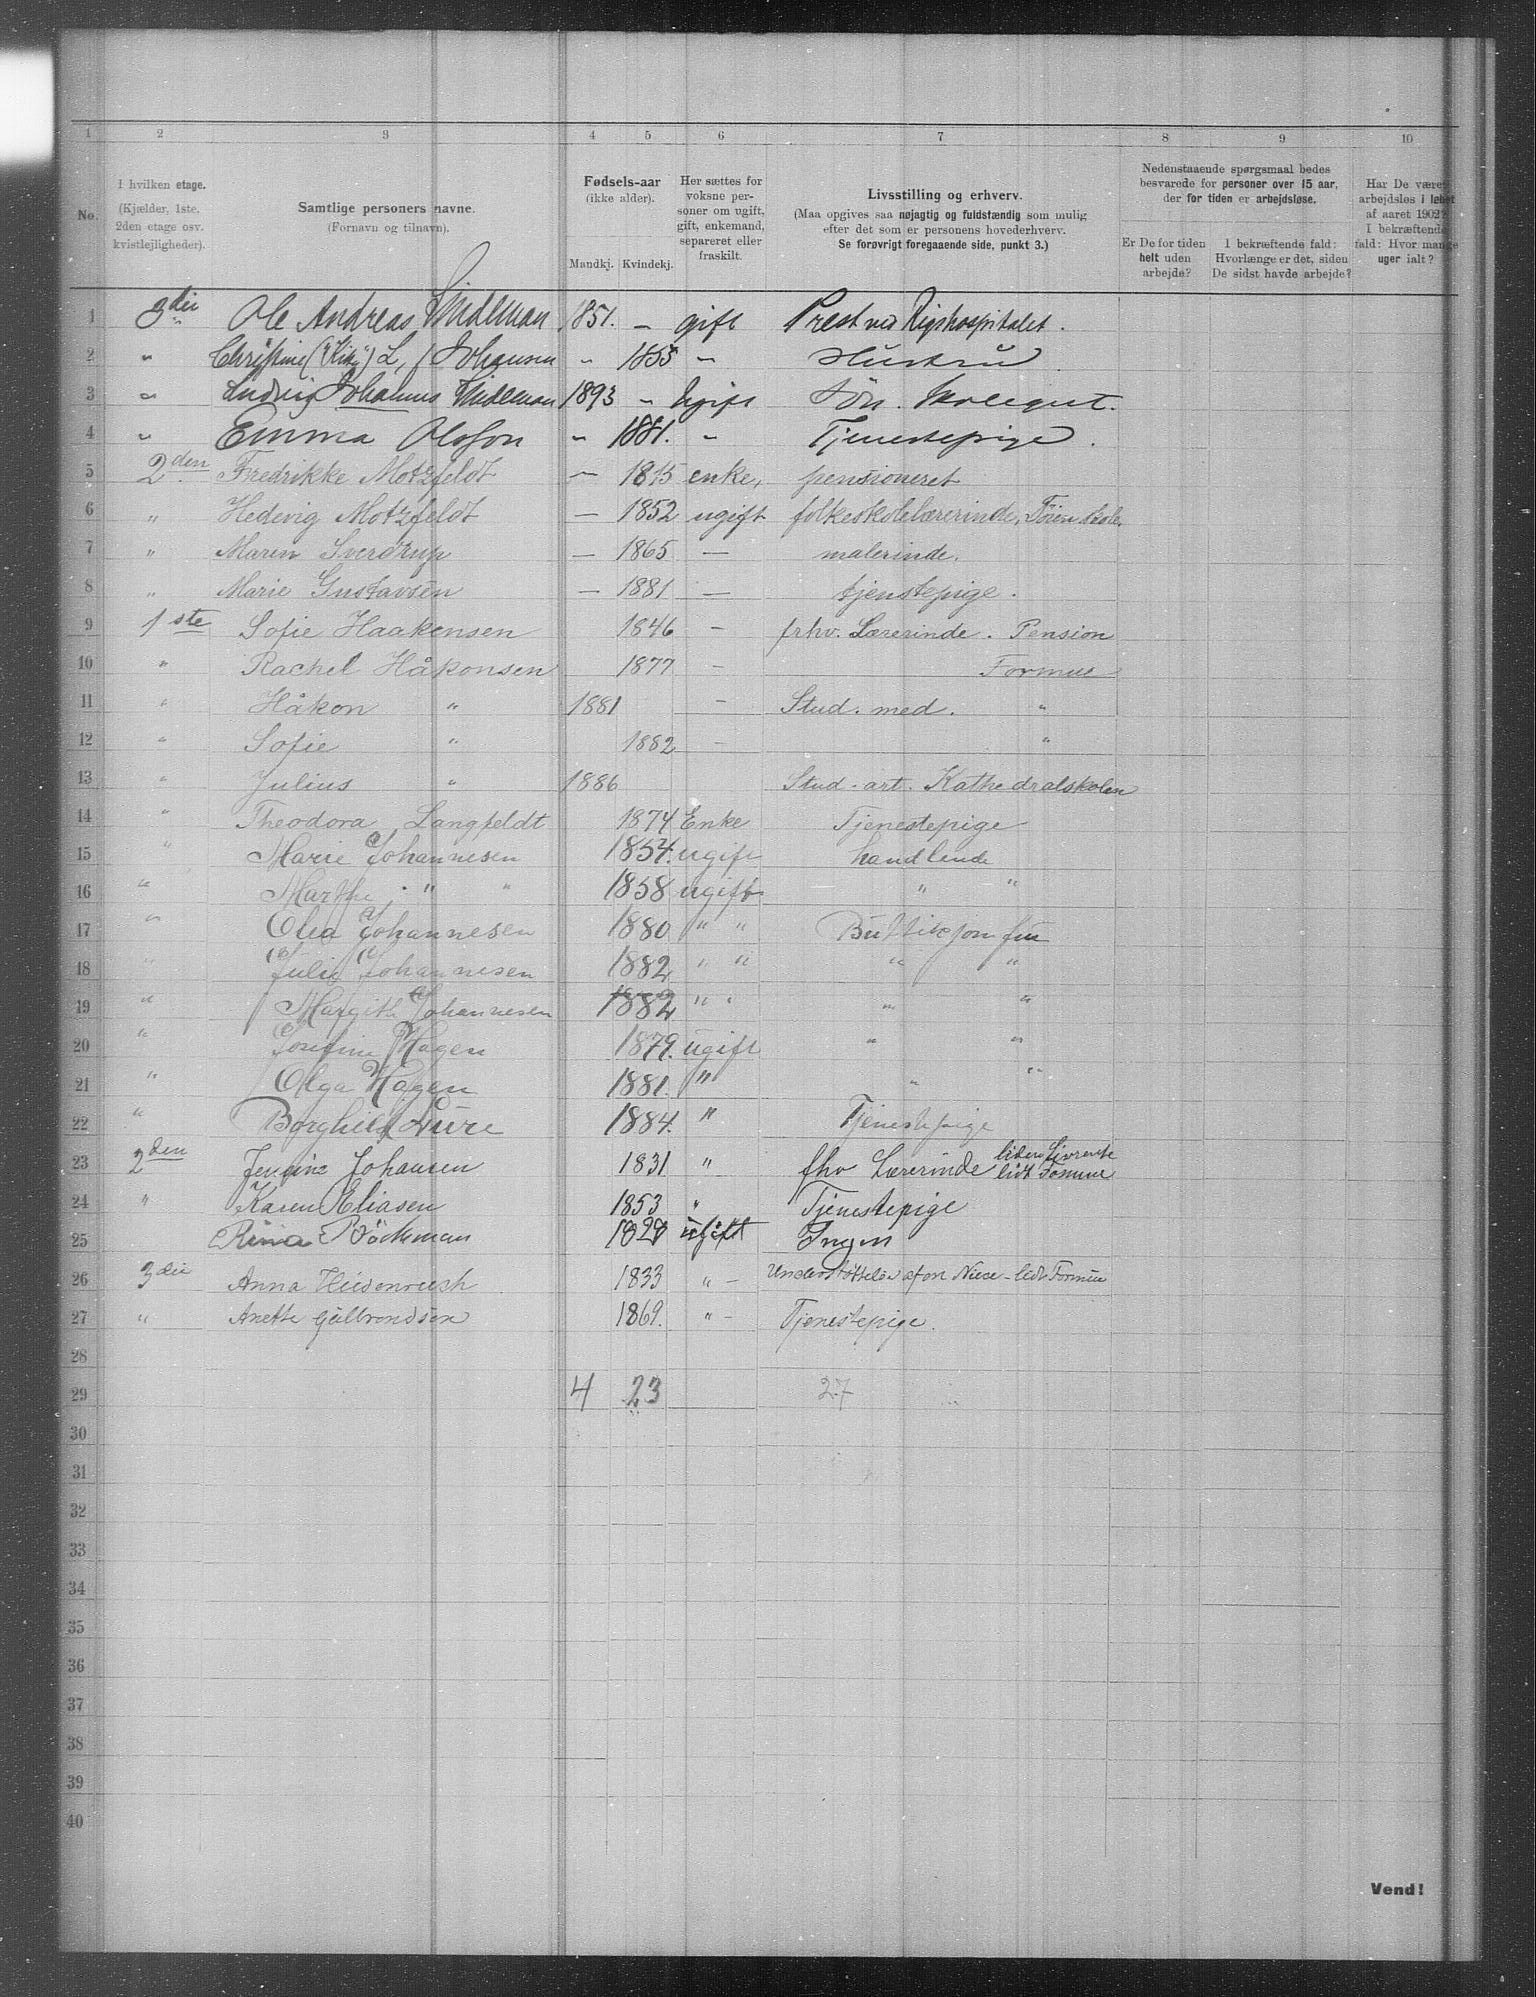 1 2 3 4 5 6 7 8 9 10
No.
I hvilken etage. (Kjælder, 1ste, 2den etage osv. kvistlejligheder).
Samtlige personers navne. (Fornavn og tilnavn).
Fødsels-aar (ikke alder). Mandkj. Kvindekj.
Her sættes for voksne personer om ugift, gift, enkemand, separeret eller fraskilt.
Livsstilling og erhverv. (Maa opgives saa nøjagtig og fuldstændig som mulig efter det som er personens hovederhverv. Se forøvrigt foregaaende side, punkt 3.)
Nedenstaaende spørgsmaal bedes besvarede for personer over 15 aar, der for tiden er arbejdsløse.
Er De for tiden helt uden arbejde?
I bekræftende fald: Hvorlænge er det, siden De sidst havde arbejde?
Har De været arbejdsløs i løbet af aaret 1902? I bekræftende fald: Hvor mange uger ialt?
1 3die Ole Andreas Lindeman 1851. – gift Prest ved Rigshospitalet.
2 " Christine ("Kit") L, f Johansen " 1855 " Hustru
3 " Ludvig Johannes Lindeman 1893 " Ugift Søn. Skolegut.
4 " Emma Olsson " 1881. " Tjenestepige.
5 2den Fredrikke Motzfeldt – 1815 enke, pensioneret
6 " Hedevig Motzfeldt – 1852 ugift folkeskolelærerinde, Tøien skole.
7 " Maren Sverdrup – 1865 – malerinde.
8 " Marie Gustavsen – 1881 – tjenstepige.
9 1ste Sofie Haakensen 1846 – frhv. Lærerinde. Pension
10 " Rachel Håkonsen 1877 – Formue
11 " Håkon " 1881 – Stud. med. "
12 " Sofie " 1882 – "
13 " Julius " 1886 Stud. art. Kathedralskolen
14 " Theodora Langfeldt 1874 Enke Tjenestepige
15 " Marie Johannesen 1854. ugift handlende
16 " Marthe " " 1858 ugift " "
17 " Olea Johannesen 1880 " " Buttikjomfru
18 " Julie Johannesen 1882 " " " "
19 " Margith Johannesen 1882 " " " "
20 " Josefine Hagen 1879. ugift " "
21 " Olga Hagen 1881. " " "
22 " Borghild Lure 1884. " Tjenestepige
23 2den Jensine Johansen 1831 " fhv Lærerinde liden Livrente lidt Formue
24 " Karen Eliasen 1853 " Tjenestepige
25 Rina Böckman 1828 ugift Ingen
26 3die Anna Heidenreich 1833 " – Understøttelse af en Niese – lidt Formue
27 " Anette Gulbrandsen 1869. " – Tjenestepige.
28
29 4 23 27
30
31
32
33
34
35
36
37
38
39
40
Vend!